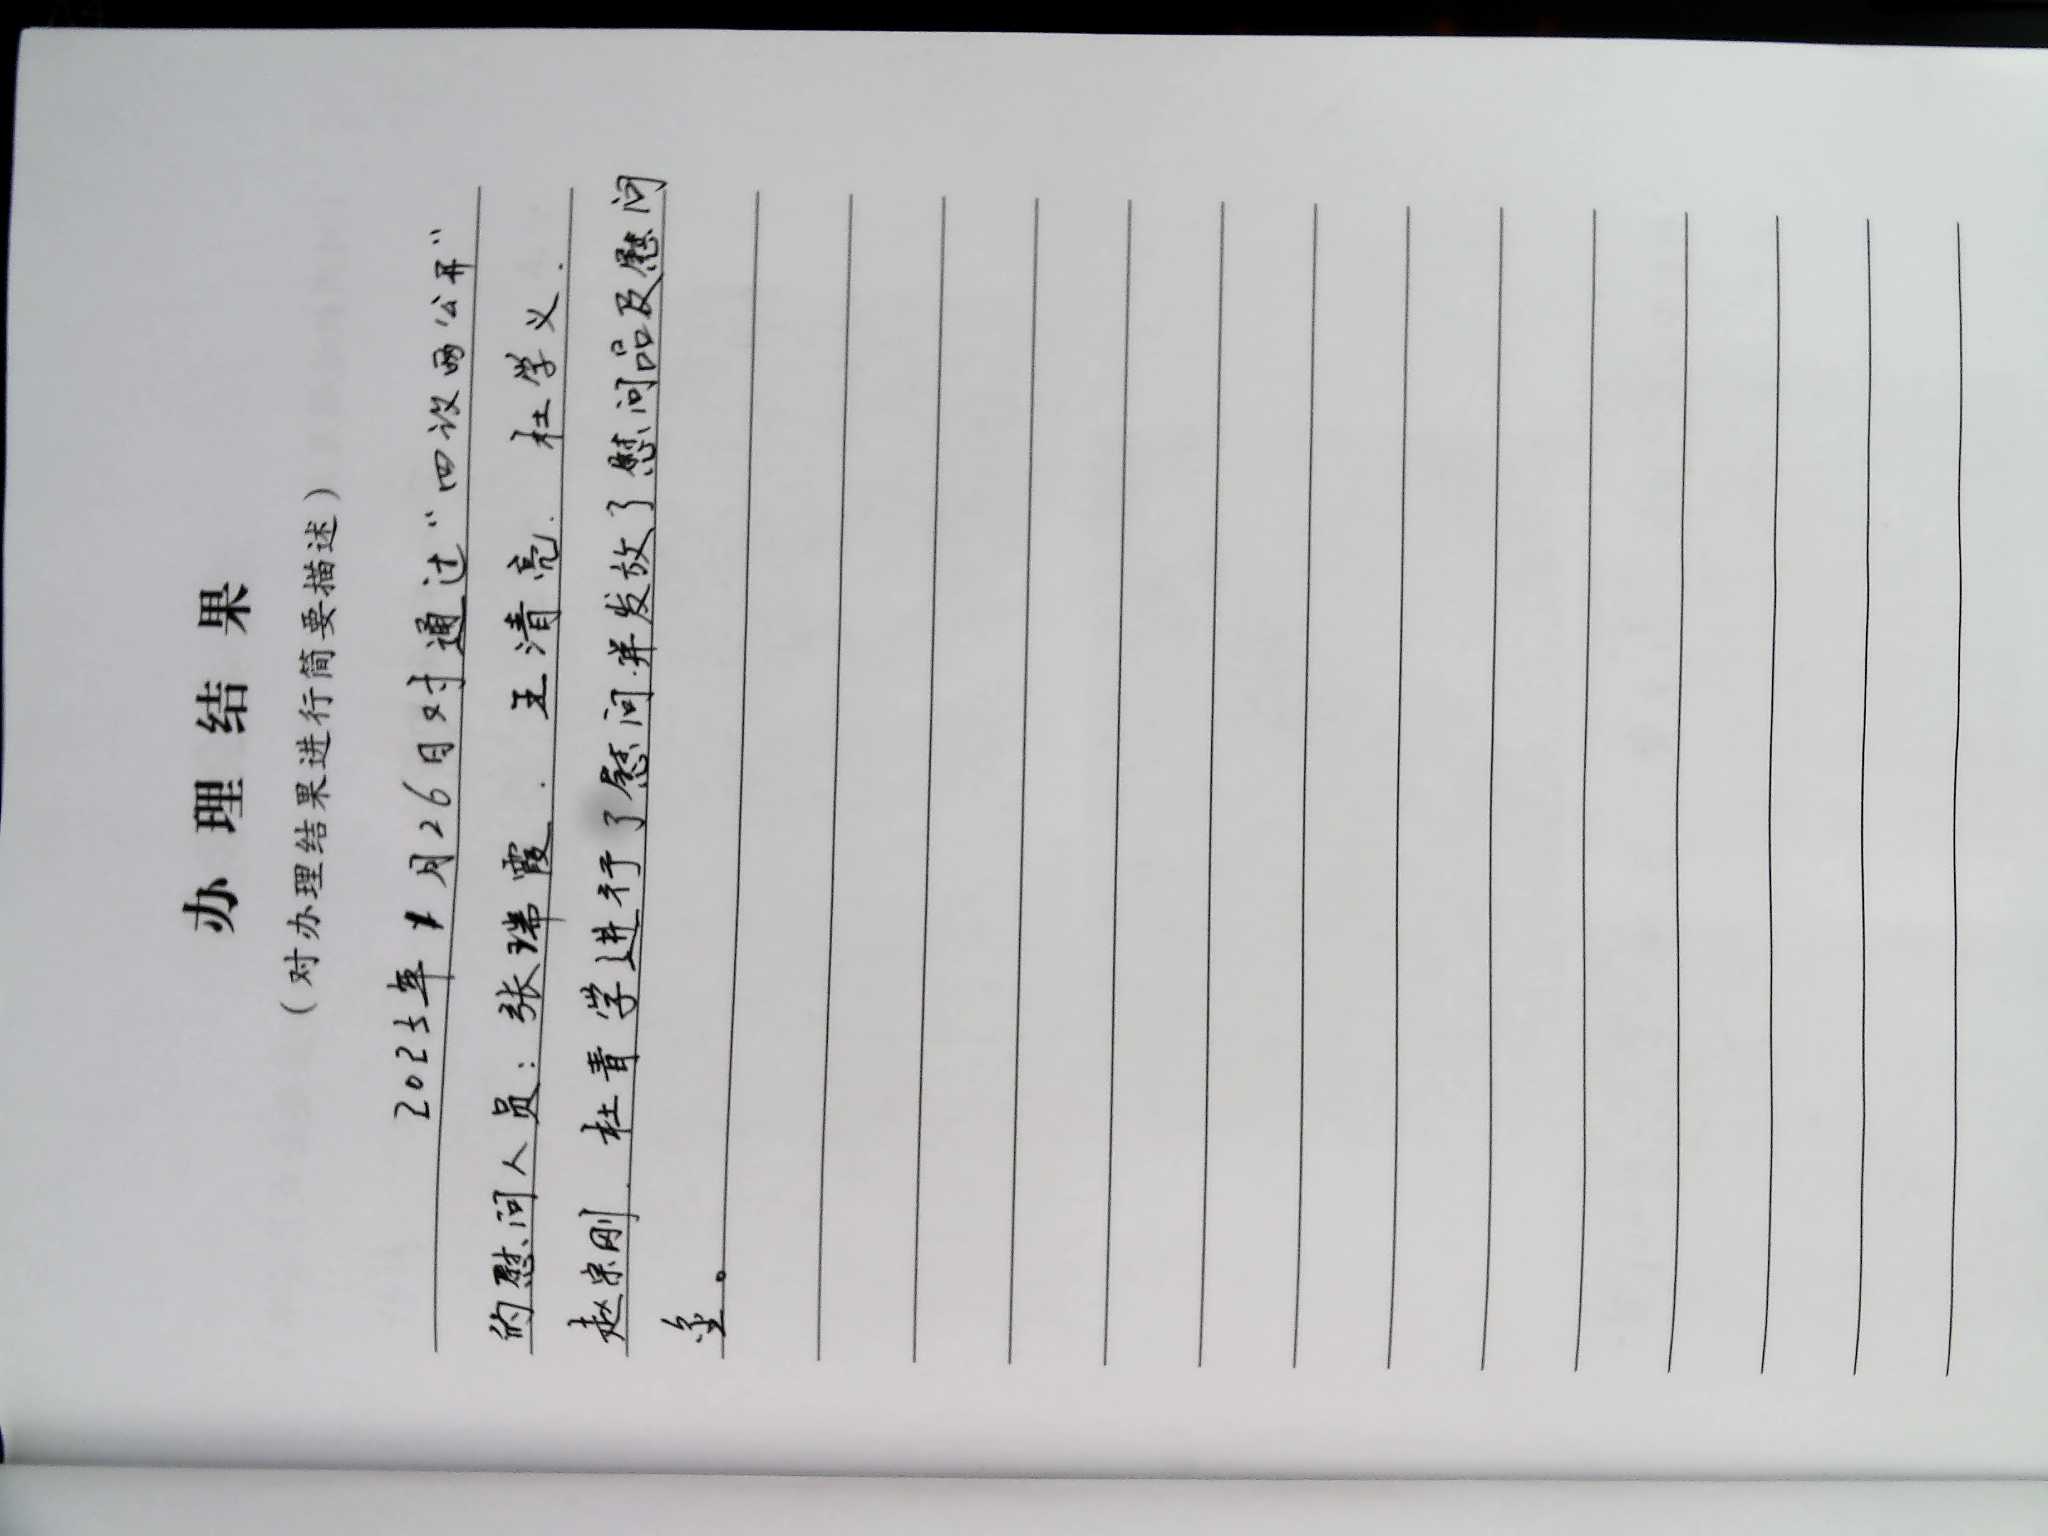 办理结果
（对办理结果进行简要描述）
2025年1月26日对通过“四议两公开”
的慰问人员：张瑞霞．王清亮．杜学义．
赵宗刚．杜青学进行了慰问．并发放了慰问品及慰问
金。